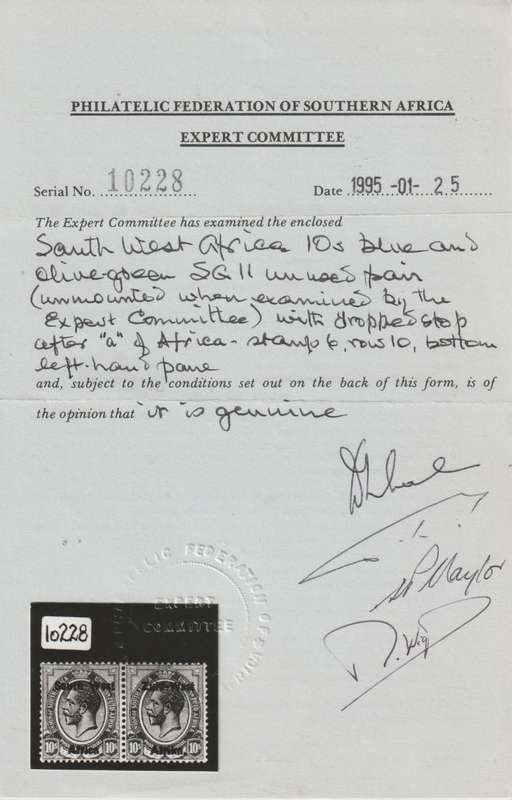 PHILATELIC FEDERATION OF SOUTHERN AFRICA
EXPERT COMMITTEE
Serial No. 10228 Date 1995 -01- 25
The Expert Committee has examined the enclosed
South West Africa 10s blue and
olive-green SG 11 unused pair
(unmounted when examined by the
Expert Committee) with dropped stop
after "a" of Africa - stamp 6, row 10, bottom
left-hand pane
and, subject to the conditions set out on the back of this form, is of
the opinion that it is genuine
PHILATELIC FEDERATION OF
EXPERT
COMMITTEE
10228
South West Zuid-West
Africa Afrika
10s 10s 10s 10s